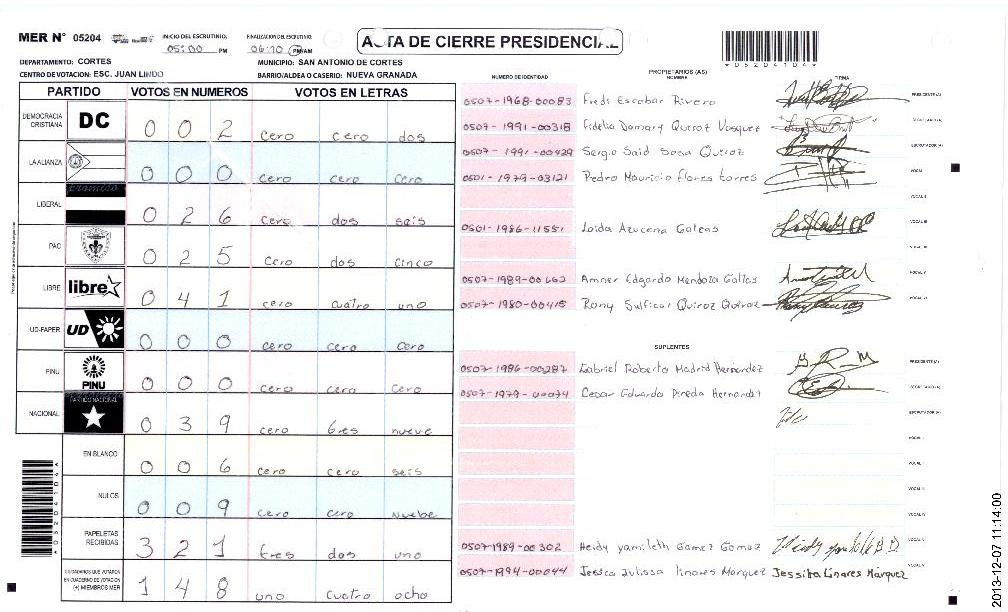 MER N° 05204 INICIO DEL ESCRUTINIO: 05:00 PM FINALIZACION DEL ESCRUTINIO: 06:10 PM/AM ACTA DE CIERRE PRESIDENCIAL
*05204104*
DEPARTAMENTO: CORTES MUNICIPIO: SAN ANTONIO DE CORTES
CENTRO DE VOTACION: ESC. JUAN LINDO BARRIO/ALDEA O CASERIO: NUEVA GRANADA
PARTIDO VOTOS EN NUMEROS VOTOS EN LETRAS
DEMOCRACIA CRISTIANA DC 0 0 2 cero cero dos
LA ALIANZA 0 0 0 cero cero cero
LIBERAL 0 2 6 cero dos seis
PAC 0 2 5 cero dos cinco
LIBRE libre 0 4 1 cero cuatro uno
UD-FAPER UD 0 0 0 cero cero cero
PINU PINU 0 0 0 cero cero cero
NACIONAL PARTIDO NACIONAL 0 3 9 cero tres nueve
EN BLANCO 0 0 6 cero cero seis
NULOS 0 0 9 cero cero nuebe
PAPELETAS RECIBIDAS 3 2 1 tres dos uno
CIUDADANOS QUE VOTARON EN CUADERNO DE VOTACION (+) MIEMBROS MER 1 4 8 uno cuatro ocho
NUMERO DE IDENTIDAD PROPIETARIOS (AS) NOMBRE FIRMA
0507-1968-00083 Fredi Escobar Rivero PRESIDENTE(A)
0507-1991-00318 Fidelia Damary Quiroz Vasquez SECRETARIO(A)
0507-1991-00429 Sergio Said Sosa Quiroz ESCRUTADOR(A)
0501-1979-03121 Pedro Mauricio flores torres VOCAL I
VOCAL II
0501-1986-11551 Loida Azucena Galeas VOCAL III
0507-1989-00662 Amner Edgardo Mendoza Galias VOCAL V
0507-1980-00415 Rony Sulficar Quiroz Quiroz VOCAL VI
SUPLENTES
0507-1986-00287 Gabriel Roberto Madrid Hernandez PRESIDENTE(A)
0507-1979-00074 Cesar Eduardo Pineda Hernandez SECRETARIO(A)
ESCRUTADOR(A)
VOCAL I
VOCAL II
VOCAL III
VOCAL IV
0507-1989-00302 Heidy yamileth Gomez Gomez VOCAL V
0507-1994-00044 Jessica Julissa linares Marquez Jessika Linares Márquez
2013-12-07 11:14:00